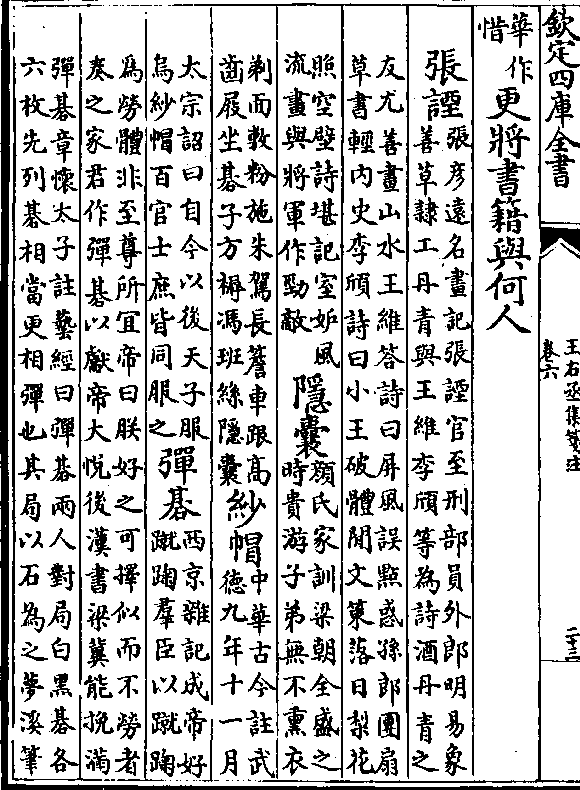 欽定四庫全書
王右丞集箋注
卷六
二十三
華作
惜
更將書籍與何人
張諲
張彦遠名畫記張諲官至刑部員外郎明易象
善草隸工丹青與王維李頎等為詩酒丹青之
友尤善畫山水王維答詩曰屏風誤點惑孫郎團扇
草書輕內史李頎詩曰小王破體閒文䇿落日梨花
照空壁詩堪記室妒風
流畫與將軍作勁敵
隱囊
顔氏家訓梁朝全盛之
時貴游子弟無不熏衣
剃面敷粉施朱駕長簷車跟高
齒屐坐棊子方褥馮班絲隱囊
紗帽
中華古今註武
德九年十一月
太宗詔曰自今以後天子服
烏紗帽百官士庶皆同服之
彈棊
西京雜記成帝好
蹴踘羣臣以蹴踘
為勞體非至尊所宜帝曰朕好之可擇似而不勞者
奏之家君作彈棊以獻帝大悅後漢書梁冀能挽滿
彈碁章懷太子註藝經曰彈碁兩人對局白黑碁各
六枚先列碁相當更相彈也其局以石為之夢溪筆